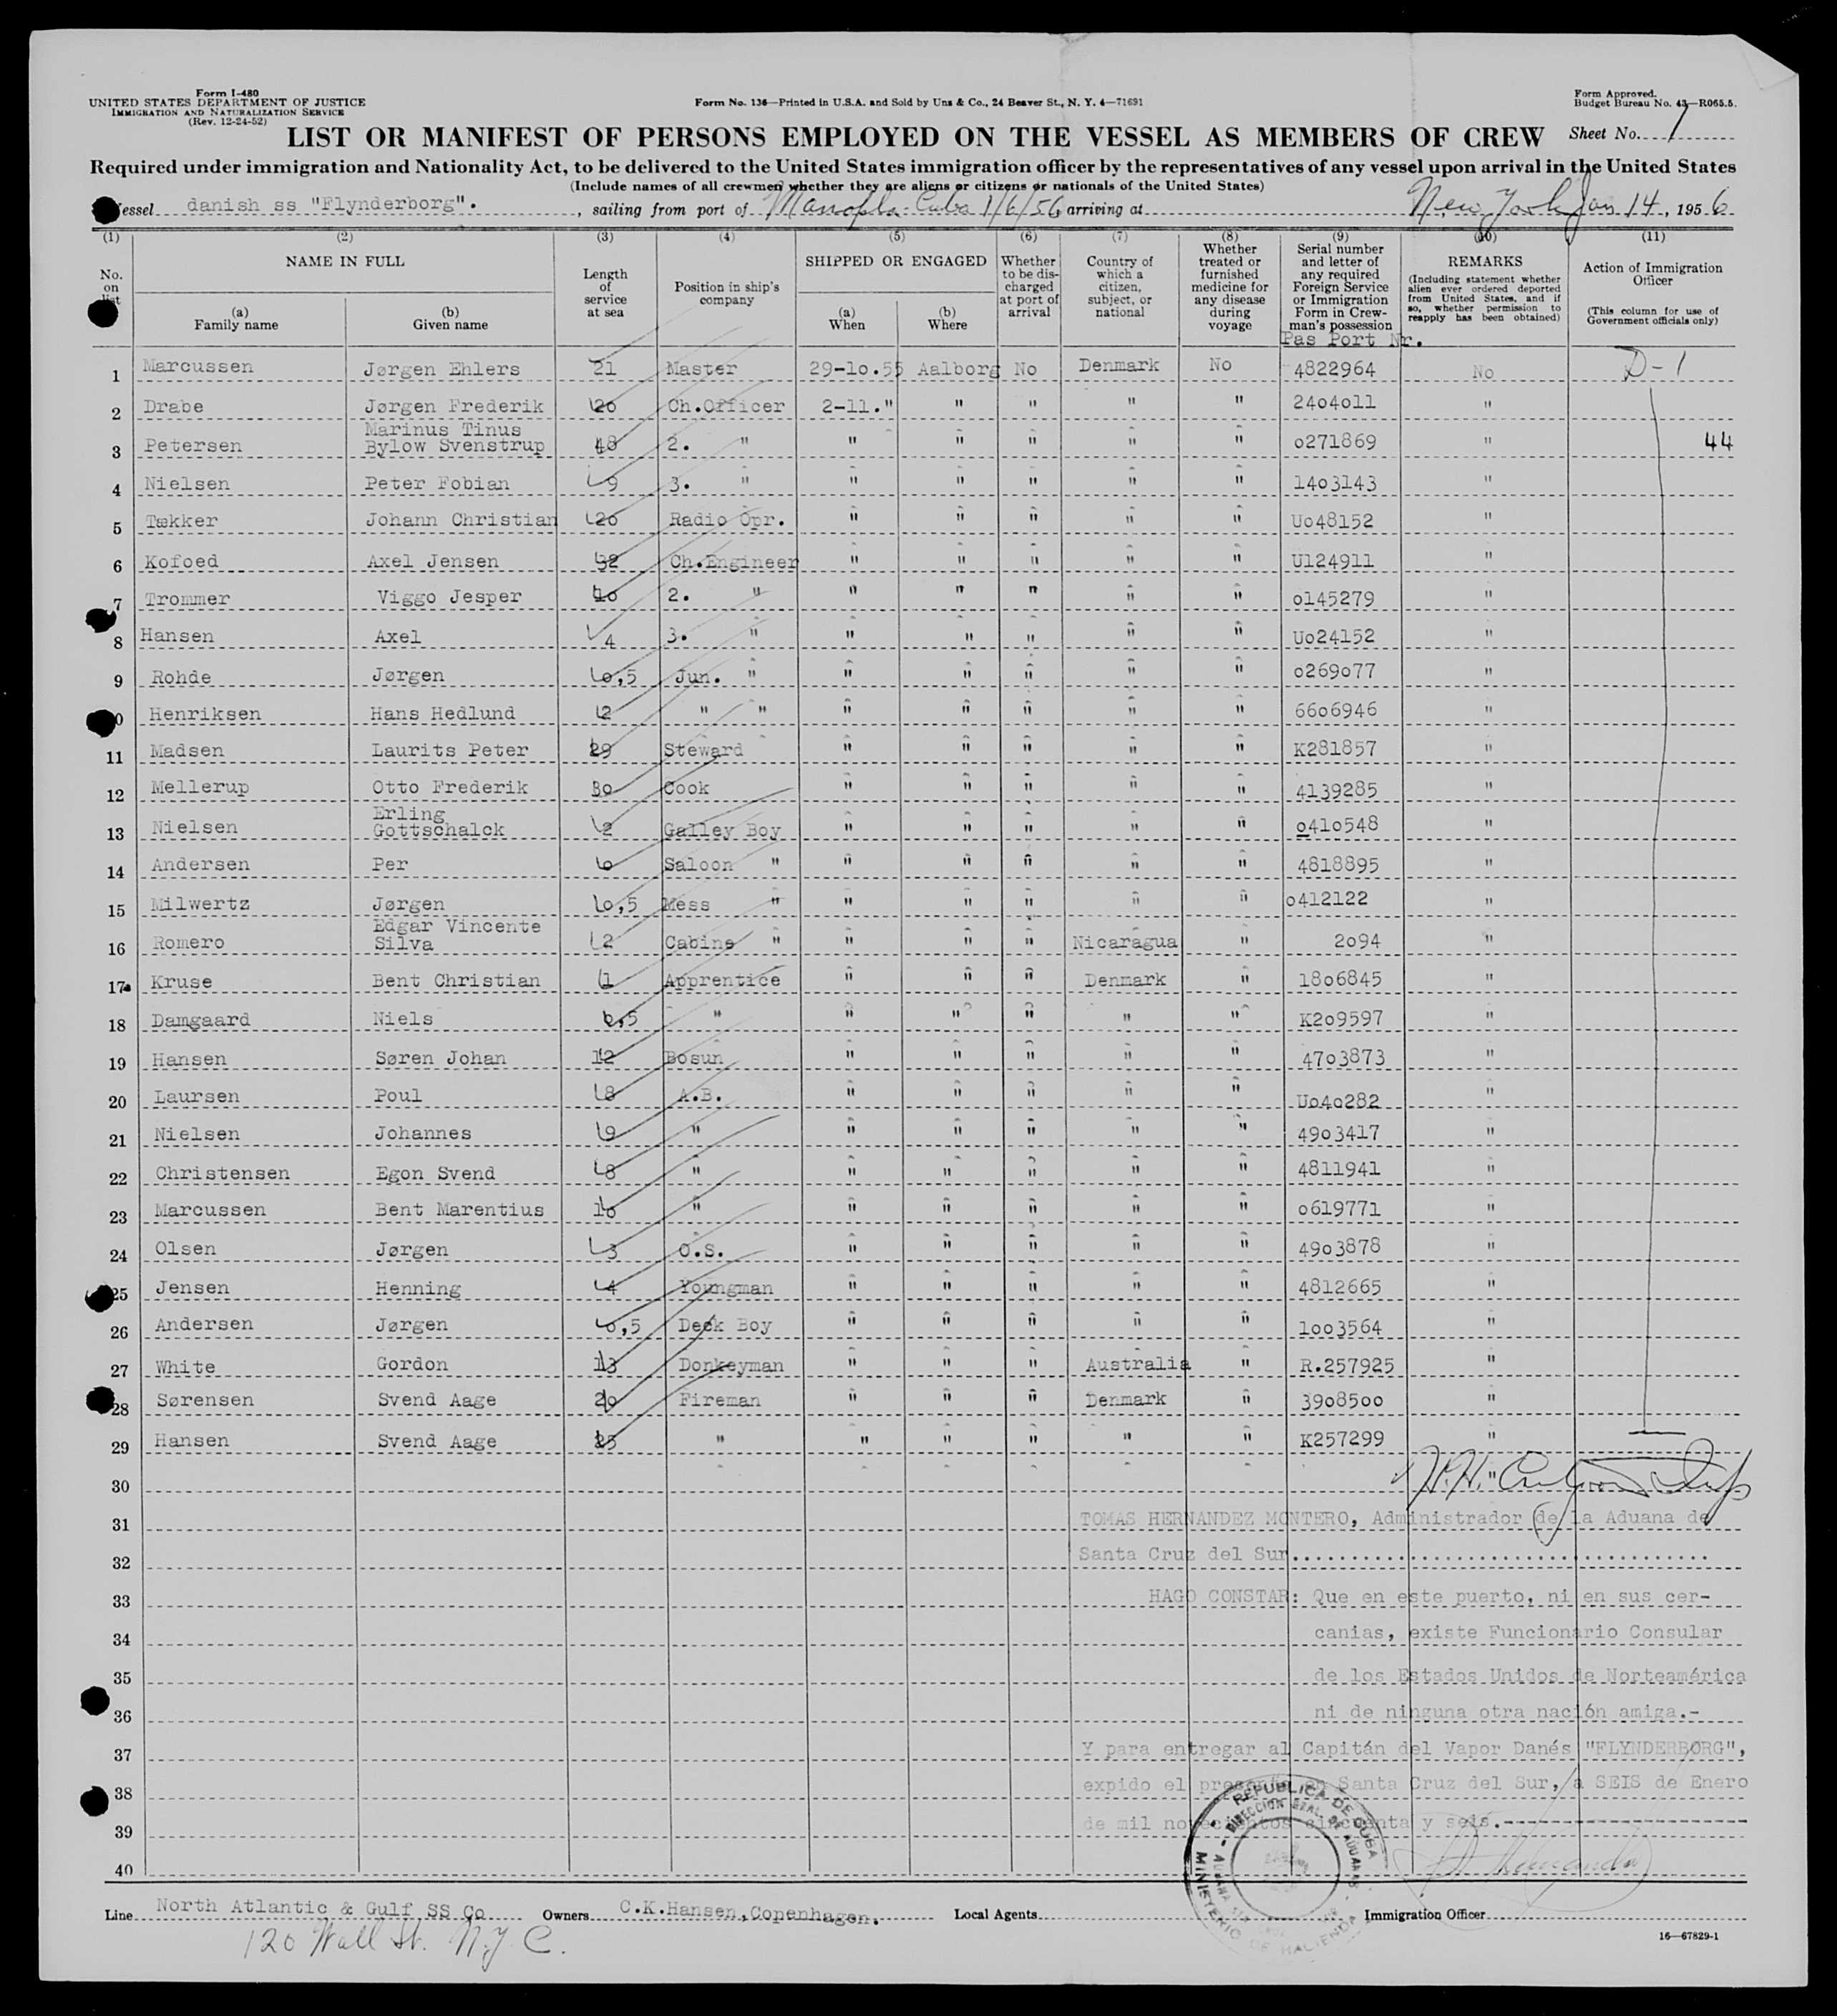 Form I-480
UNITED STATES DEPARTMENT OF JUSTICE
IMMIGRATION AND NATURALIZATION SERVICE
(Rev. 12-24-52)
Form No. 136—Printed in U.S.A. and Sold by Unz & Co., 24 Beaver St., N. Y. 4—71691
Form Approved.
Budget Bureau No. 43—R065.5.
LIST OR MANIFEST OF PERSONS EMPLOYED ON THE VESSEL AS MEMBERS OF CREW
Sheet No. 1
Required under immigration and Nationality Act, to be delivered to the United States immigration officer by the representatives of any vessel upon arrival in the United States
(Include names of all crewmen whether they are aliens or citizens or nationals of the United States)
Vessel danish ss "Flynderborg"., sailing from port of Manopla-Cuba 1/6/56, arriving at New York Jan 14, 1956
(1) (2) (3) (4) (5) (6) (7) (8) (9) (10) (11)
No. on list
NAME IN FULL
(a) Family name
(b) Given name
Length of service at sea
Position in ship's company
SHIPPED OR ENGAGED
(a) When
(b) Where
Whether to be discharged at port of arrival
Country of which a citizen, subject, or national
Whether treated or furnished medicine for any disease during voyage
Serial number and letter of any required Foreign Service or Immigration Form in Crewman's possession
Pas Port Nr.
REMARKS
(Including statement whether alien ever ordered deported from United States, and if so, whether permission to reapply has been obtained)
Action of Immigration Officer
(This column for use of Government officials only)
1 Marcussen Jørgen Ehlers 21 Master 29-1o.55 Aalborg No Denmark No 4822964 No D-1
2 Drabe Jørgen Frederik 2o Ch.Officer 2-11." " " " " 24o4o11 "
3 Petersen Marinus Tinus Bylow Svenstrup 48 2. " " " " " " o271869 " 44
4 Nielsen Peter Fobian 9 3. " " " " " " 14o3143 "
5 Tækker Johann Christian 2o Radio Opr. " " " " " Uo48152 "
6 Kofoed Axel Jensen 32 Ch.Engineer " " " " " U124911 "
7 Trommer Viggo Jesper 1o 2. " " " " " " o145279 "
8 Hansen Axel 4 3. " " " " " " Uo24152 "
9 Rohde Jørgen o,5 Jun. " " " " " " o269o77 "
10 Henriksen Hans Hedlund 2 " " " " " " " 66o6946 "
11 Madsen Laurits Peter 29 Steward " " " " " K281857 "
12 Mellerup Otto Frederik 3o Cook " " " " " 4139285 "
13 Nielsen Erling Gottschalck 2 Galley Boy " " " " " o41o548 "
14 Andersen Per o Saloon " " " " " " 4818895 "
15 Milwertz Jørgen o,5 Mess " " " " " " o412122 "
16 Romero Edgar Vincente Silva 2 Cabins " " " " Nicaragua " 2o94 "
17 Kruse Bent Christian 1 Apprentice " " " Denmark " 18o6845 "
18 Damgaard Niels o,5 " " " " " " K2o9597 "
19 Hansen Søren Johan 12 Bosun " " " " " 47o3873 "
20 Laursen Poul 8 A.B. " " " " " Uo4o282 "
21 Nielsen Johannes 9 " " " " " " 49o3417 "
22 Christensen Egon Svend 8 " " " " " " 4811941 "
23 Marcussen Bent Marentius 1o " " " " " " o619771 "
24 Olsen Jørgen 3 O.S. " " " " " 49o3878 "
25 Jensen Henning 4 Youngman " " " " " 4812665 "
26 Andersen Jørgen o,5 Deck Boy " " " " " 1oo3564 "
27 White Gordon 13 Donkeyman " " " Australia " R.257925 "
28 Sørensen Svend Aage 2o Fireman " " " Denmark " 39o85oo "
29 Hansen Svend Aage 25 " " " " " " K257299 "
30 "
31 TOMAS HERNANDEZ MONTERO, Administrador de la Aduana de
32 Santa Cruz del Sur......................................
33 HAGO CONSTAR: Que en este puerto, ni en sus cer-
34 canias, existe Funcionario Consular
35 de los Estados Unidos de Norteamérica
36 ni de ninguna otra nación amiga.-
37 Y para entregar al Capitán del Vapor Danés "FLYNDERBORG",
38 expido el presente en Santa Cruz del Sur, a SEIS de Enero
39 de mil novecientos cincuenta y seis.-
40
REPUBLICA DE CUBA
DIRECCION GRAL. DE ADUANAS
MINISTERIO DE HACIENDA
Line North Atlantic & Gulf SS Co Owners C.K.Hansen,Copenhagen. Local Agents Immigration Officer
120 Wall St. N.Y.C.
16—67829-1